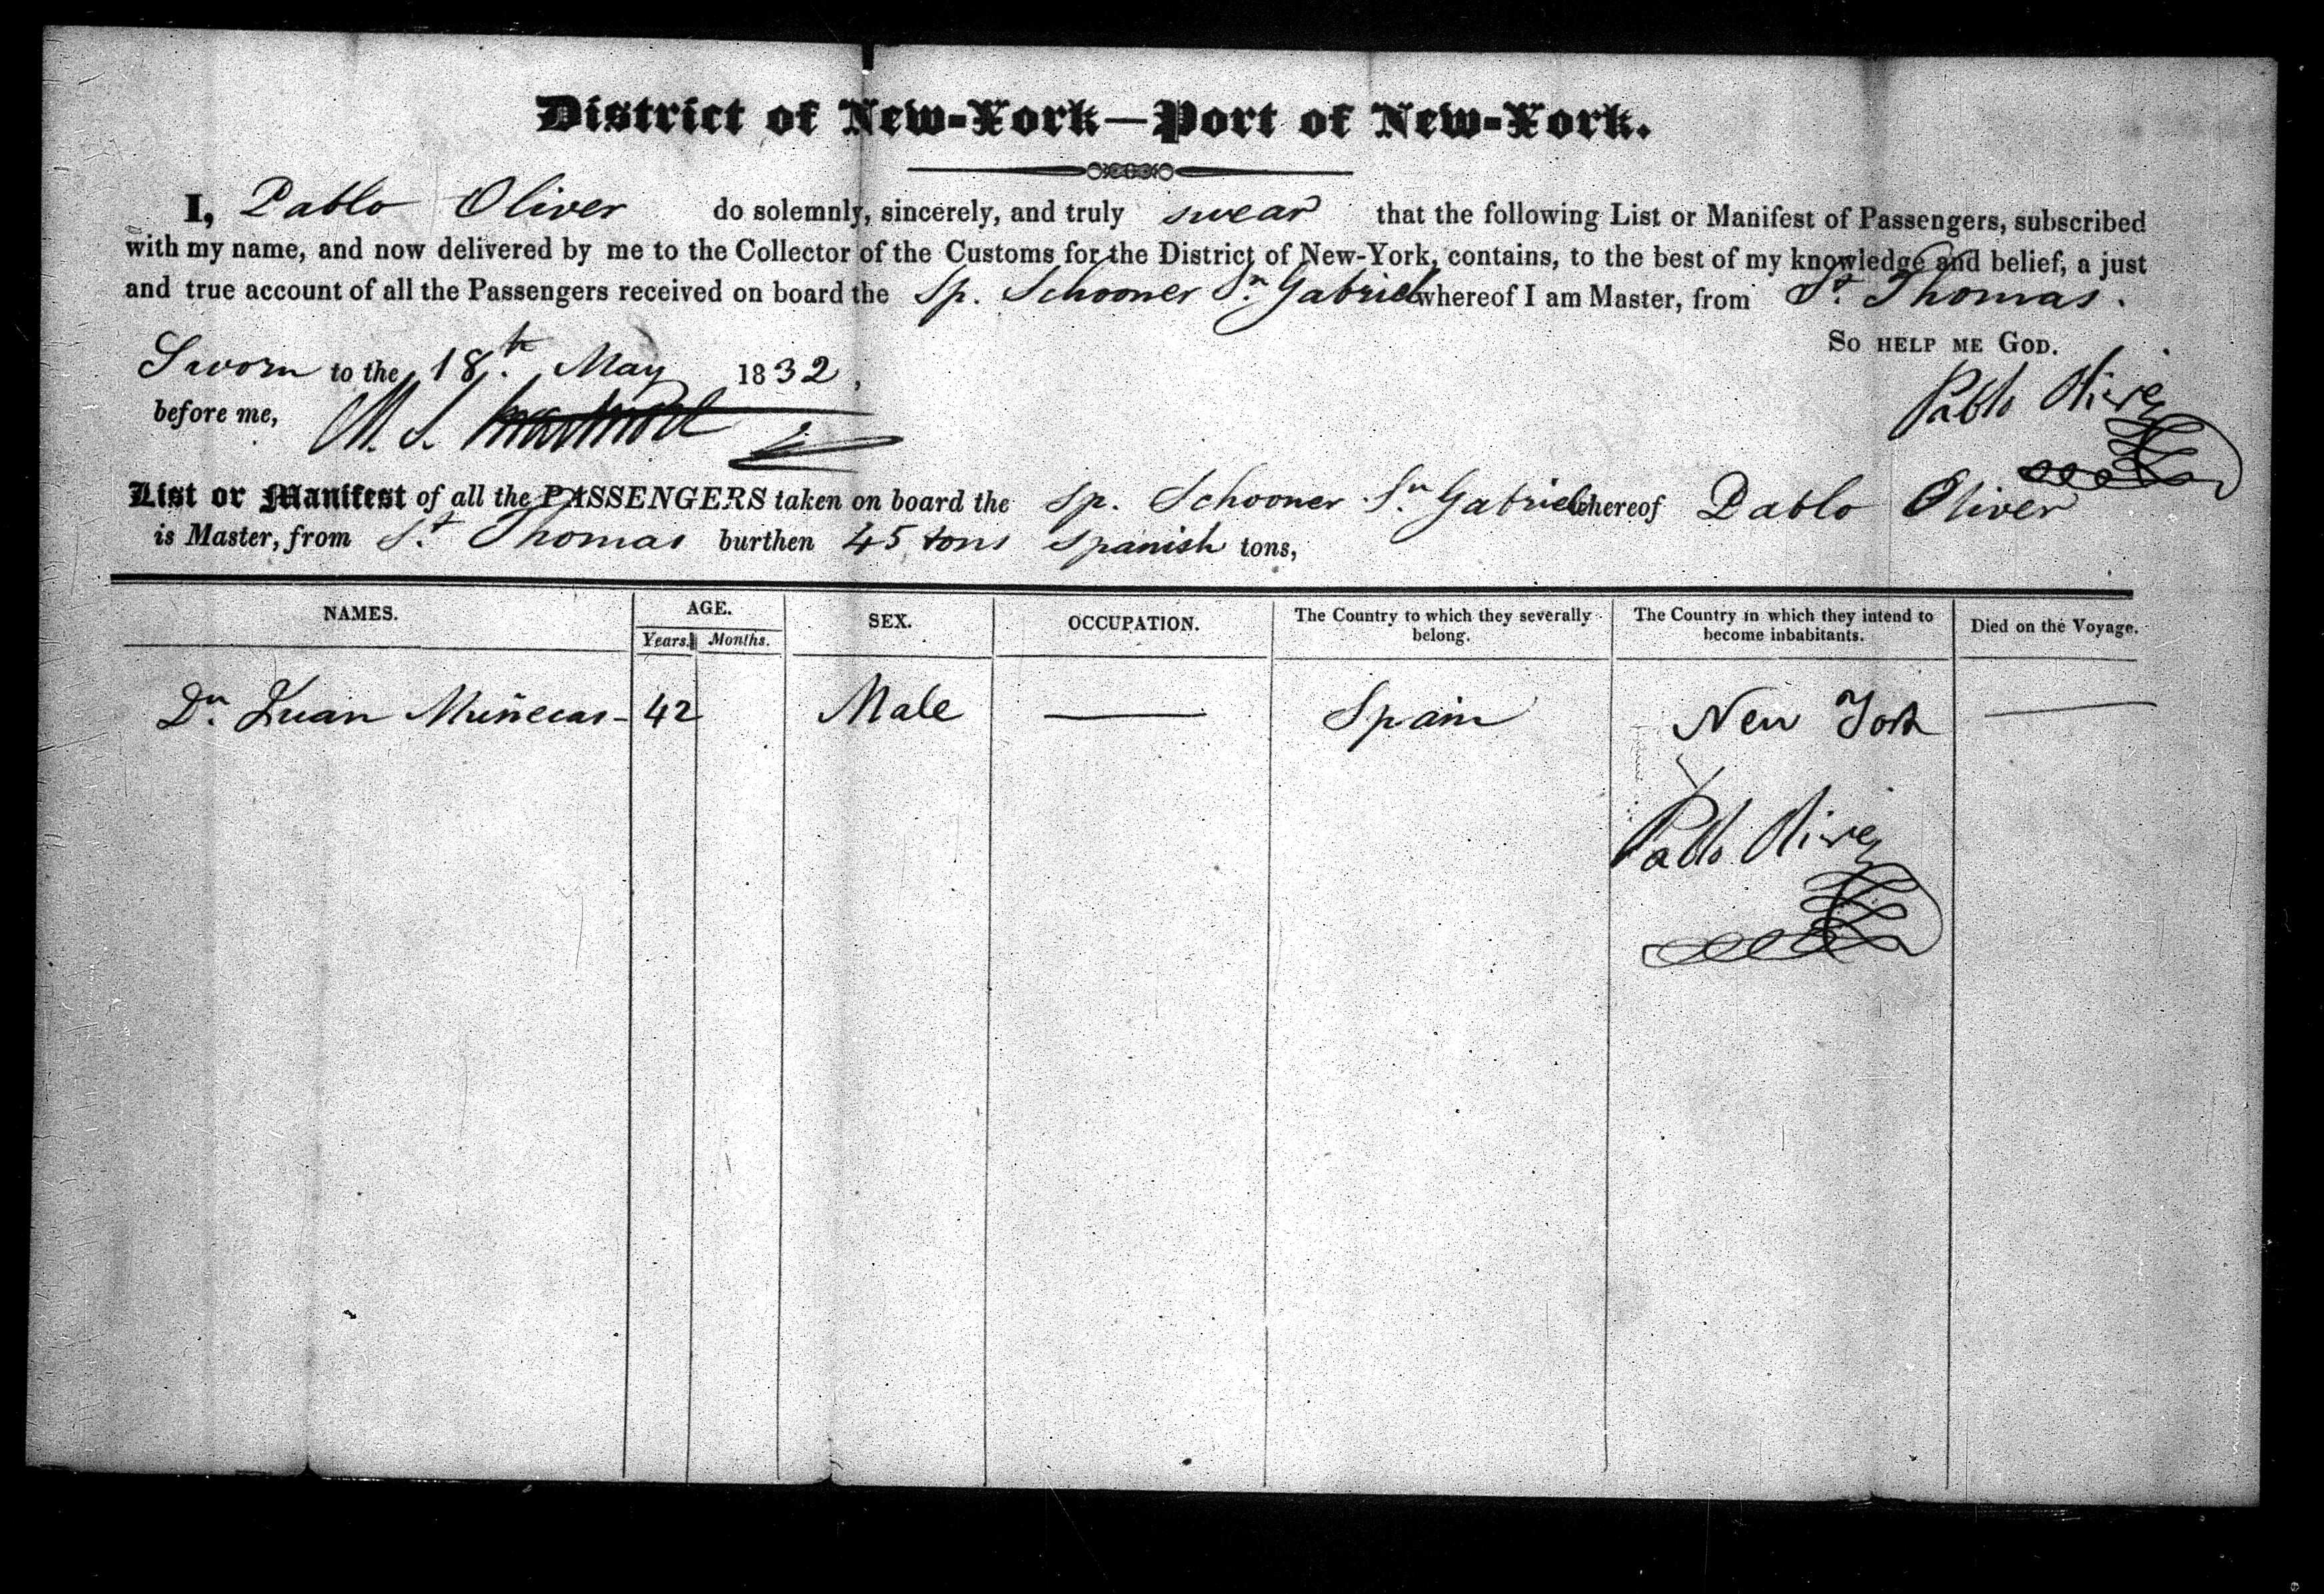 District of New-York—Port of New-York.
I, Pablo Oliver do solemnly, sincerely, and truly swear that the following List or Manifest of Passengers, subscribed
with my name, and now delivered by me to the Collector of the Customs for the District of New-York, contains, to the best of my knowledge and belief, a just
and true account of all the Passengers received on board the Sp. Schooner Sn. Gabriel whereof I am Master, from St. Thomas.
So help me God.
Sworn to the 18th. May 1832,
Pablo Oliver
before me, M. S.
List or Manifest of all the PASSENGERS taken on board the Sp. Schooner Sn. Gabriel whereof Pablo Oliver
is Master, from St. Thomas burthen 45 tons Spanish tons,
NAMES. AGE. SEX. OCCUPATION. The Country to which they severally belong. The Country in which they intend to become inhabitants. Died on the Voyage.
Years. Months.
Dn. Juan Muñecas - 42 Male — Spain New York —
Pablo Oliver